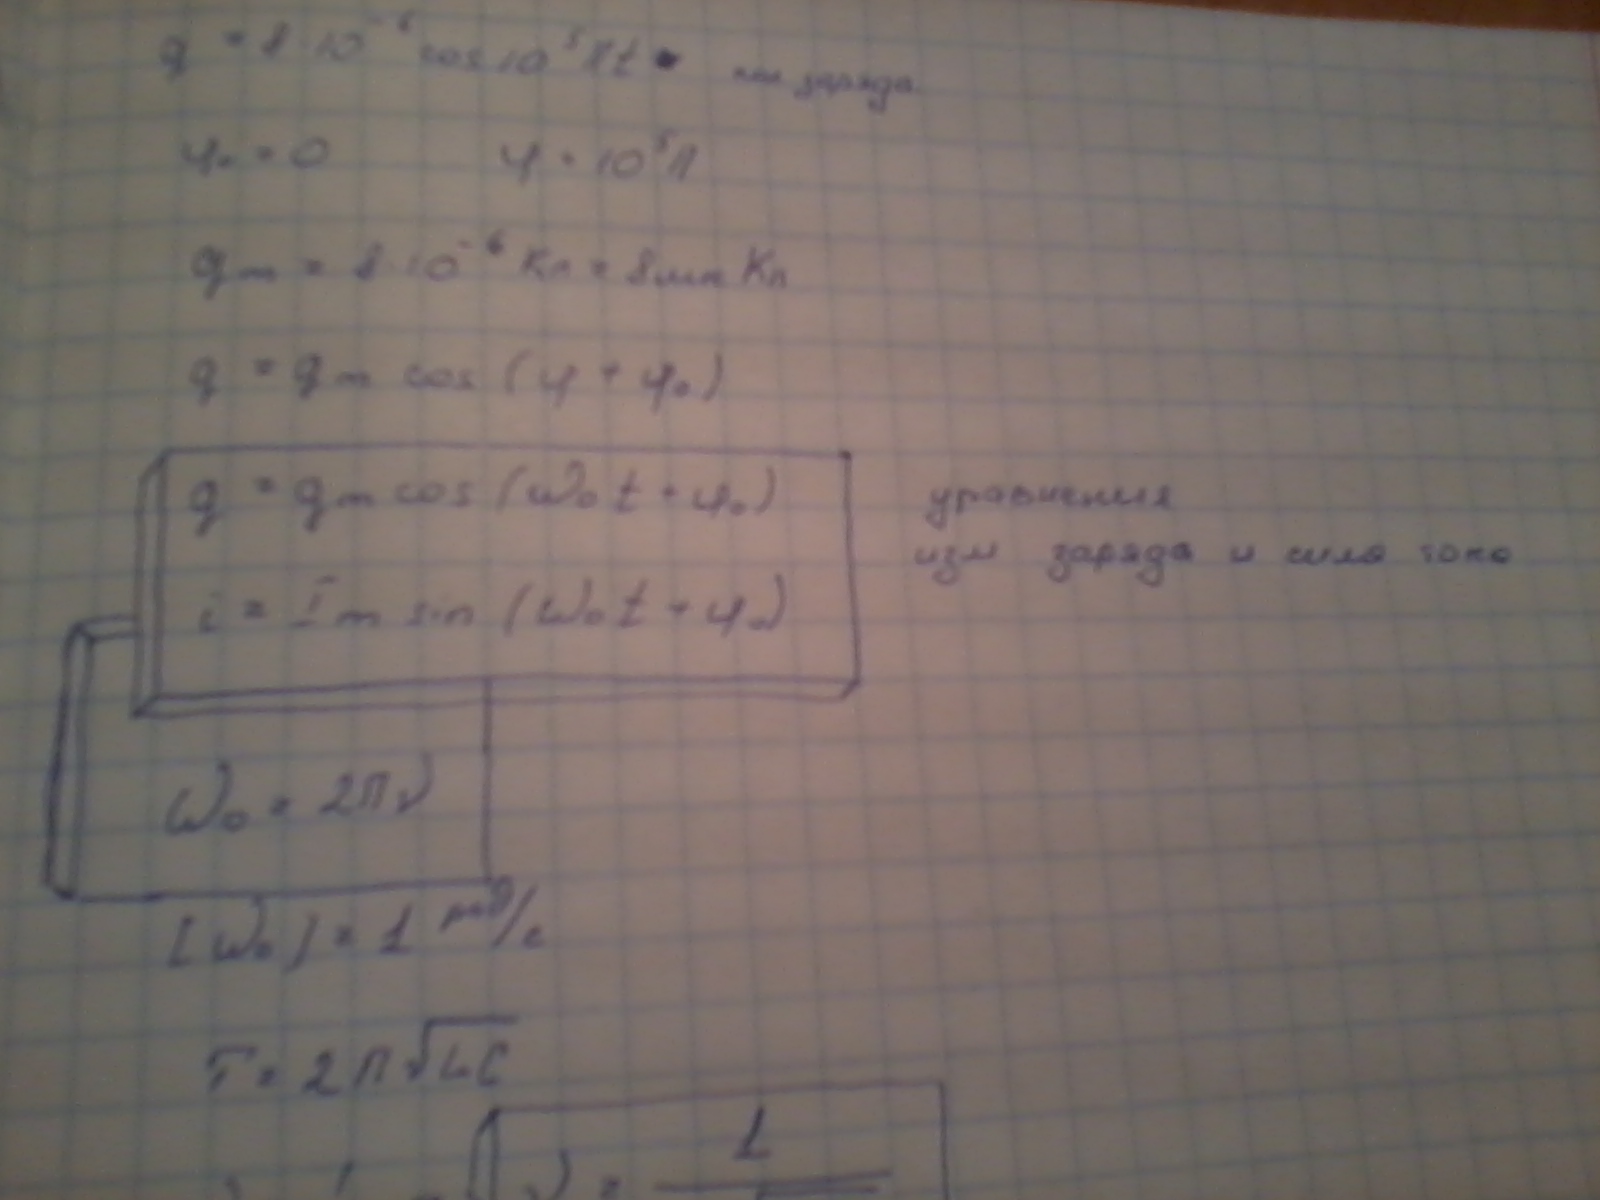 q = 8·10⁻⁶ cos 10⁵πt заряда
φ₀ = 0 φ = 10⁵π
qm = 8·10⁻⁶ Кл = 8 мк Кл
q = qm cos (φ + φ₀)
q = qm cos (ω₀t + φ₀)
i = Im sin (ω₀t + φ₀)
уравнения
изм заряда и сила тока
ω₀ = 2πν
[ω₀] = 1 рад/с
T = 2π√LC
ν = 1